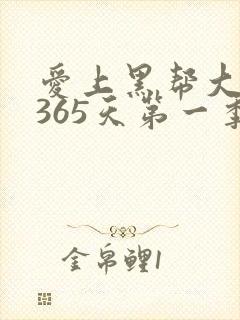 爱上黑帮大
365天第一季
金帛鲤1